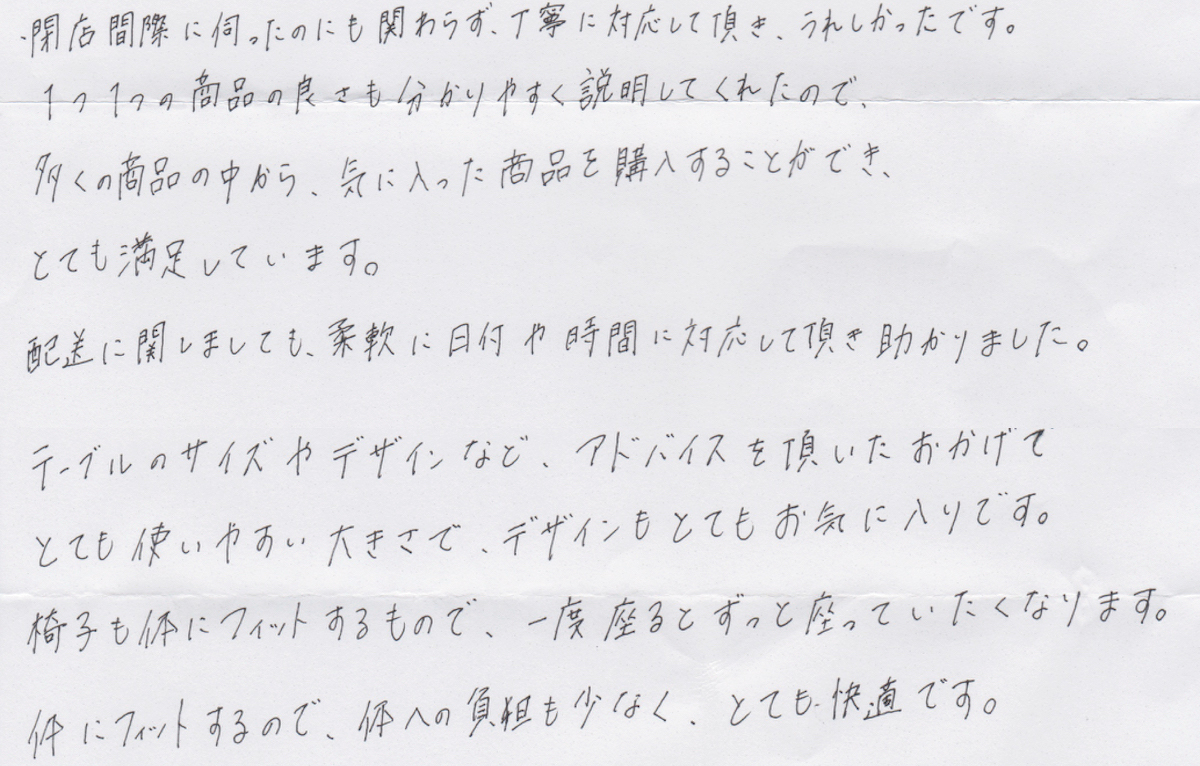 ・閉店間際に伺ったのにも関わらず、丁寧に対応して頂き、うれしかったです。
1つ1つの商品の良さも分かりやすく説明してくれたので、
多くの商品の中から、気に入った商品を購入することができ、
とても満足しています。
配送に関しましても、柔軟に日付や時間に対応して頂き助かりました。
テーブルのサイズやデザインなど、アドバイスを頂いたおかげで
とても使いやすい大きさで、デザインもとてもお気に入りです。
椅子も体にフィットするもので、一度座るとずっと座っていたくなります。
体にフィットするので、体への負担も少なく、とても快適です。